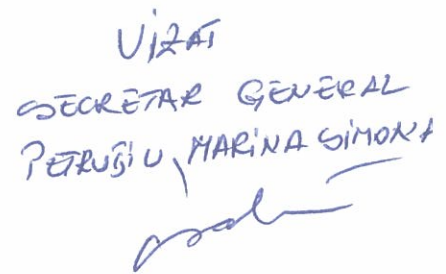 VIZAT
SECRETAR GENERAL
PETRUȘIU MARINA SIMONA